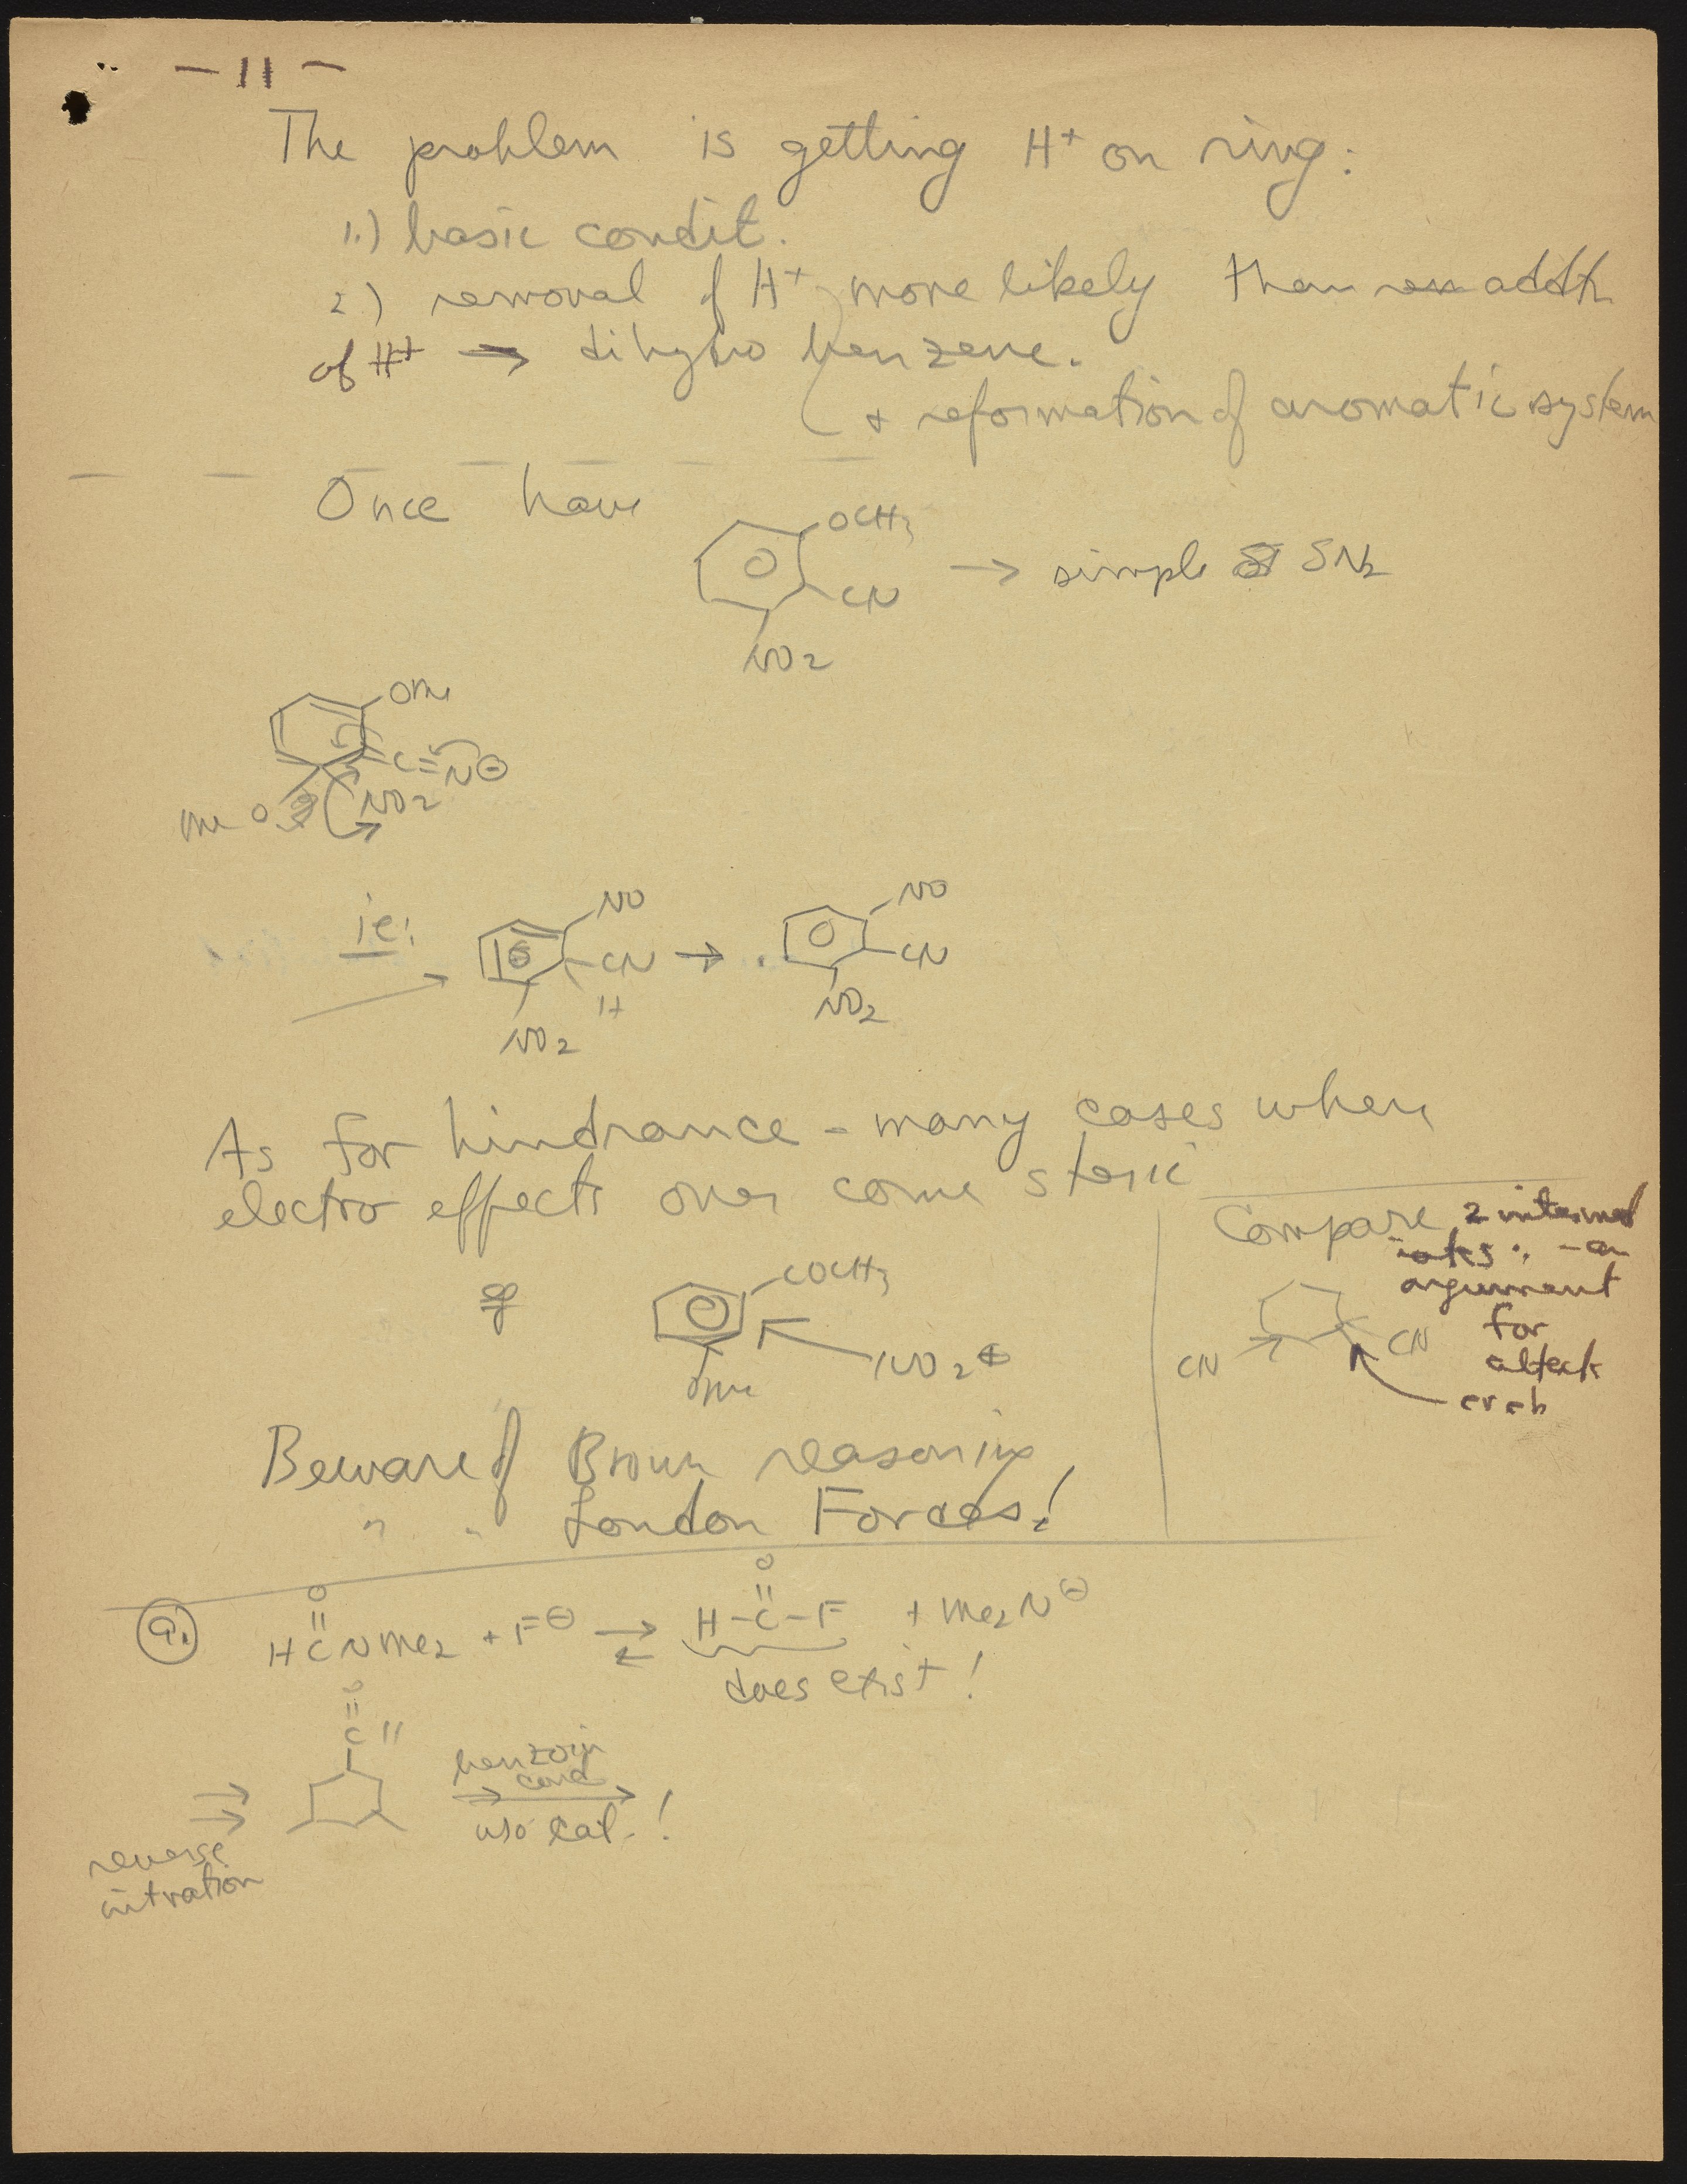 - 11 -
The problem is getting H+ on ring:
1.) basic condit.
2.) removal of H+ more likely than addn
of H+ → dihydro benzene.
+ reformation of aromatic system
Once have
OCH3
CN
NO2
→ simple SN2
OMe
C=N⊖
NO2
MeO
ie:
NO
CN
H
NO2
→
NO
CN
NO2
As for hindrance - many cases where
electro effects over come steric
COCH3
NO2⊕
OMe
Compare 2 intermed
iates: - an
argument
for
attack
CN
CN
Beware of Brown reasoning
" " London Forces!
9.)
O
HCNMe2 + F⊖ ⇄ H-C-F + Me2N⊖
O
does exist!
O
C
benzoin
cond
w/o cat. !
reverse
nitration